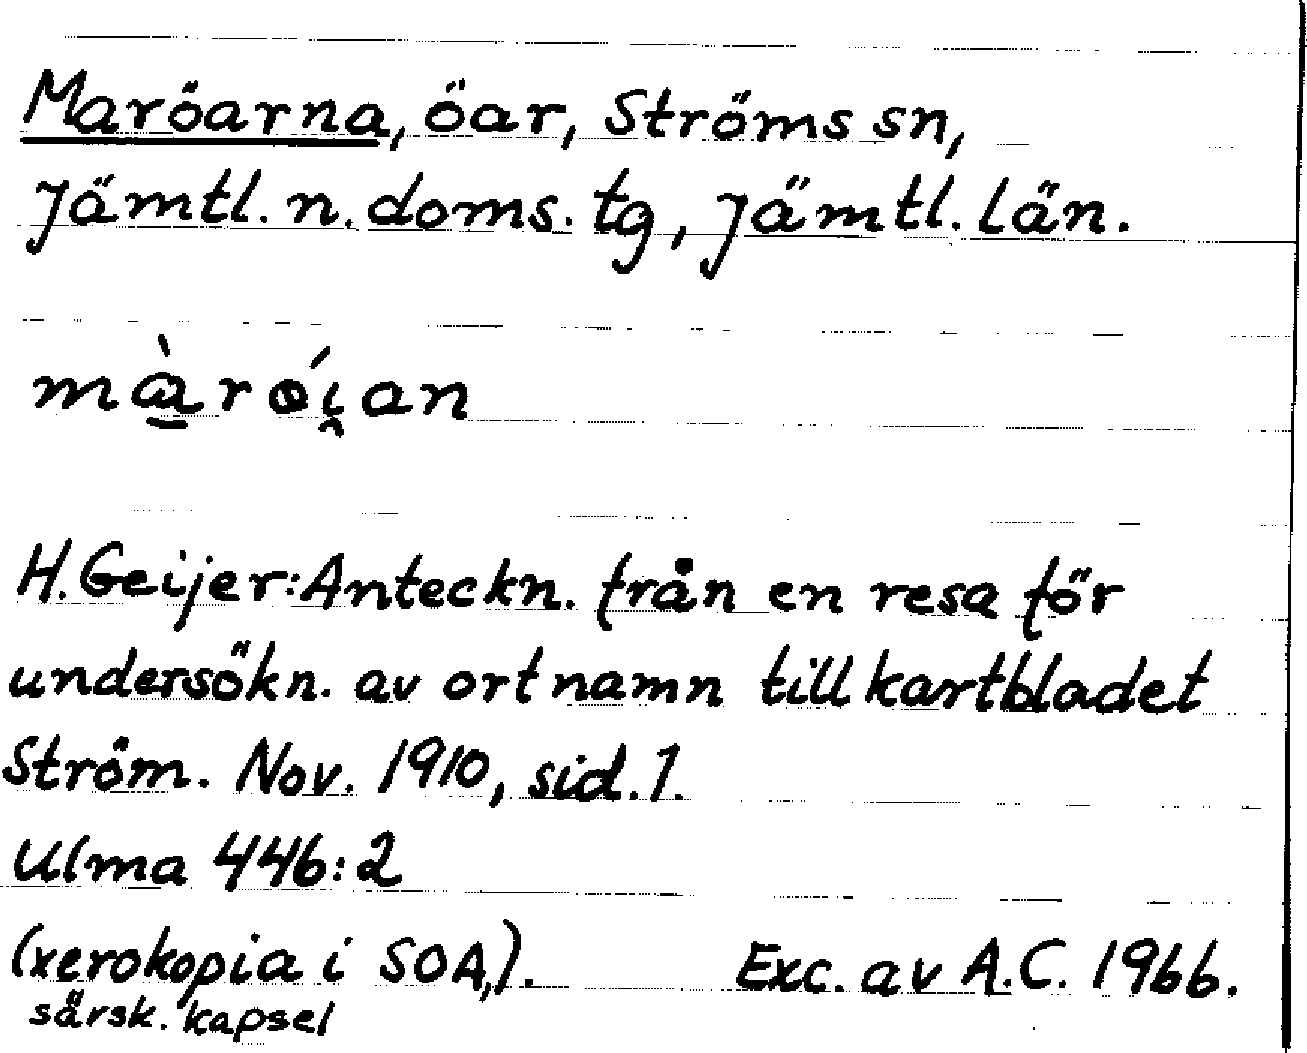 Maröarna, öar, Ströms sn,
Jämtl. n. doms. tg, Jämtl. län.
H. Geijer: Anteckn. från en resa för
undersökn. av ortnamn till kartbladet
Ström. Nov. 1910, sid. 1.
Ulma 446:2
(xerokopia i SOA,). Exc. av A.C. 1966.
särsk. kapsel